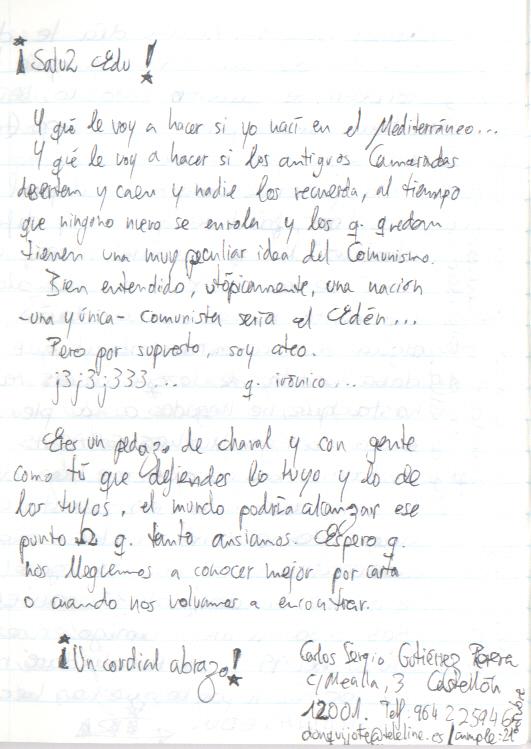 ¡Salu2 Edu!
Y qué le voy a hacer si yo nací en el Mediterráneo...
Y qué le voy a hacer si los antiguos Camaradas
desertan y caen y nadie los recuerda, al tiempo
que ninguno nuevo se enrola y los q. quedan
tienen una muy peculiar idea del Comunismo.
Bien entendido, utópicamente, una nación
-una y única- comunista sería el Edén...
Pero por supuesto, soy ateo.
j3j3j333... q. irónico...
Eres un pedazo de chaval y con gente
como tú que defiendes lo tuyo y lo de
los tuyos, el mundo podría alcanzar ese
punto Ω q. tanto ansiamos. Espero q.
nos lleguemos a conocer mejor por carta
o cuando nos volvamos a encontrar.
¡Un cordial abrazo!
Carlos Sergio Gutiérrez Perera
c/Mealla, 3 Castellón
12001. Telf. 964 225946
donquijote@teleline.es /cumple: 21